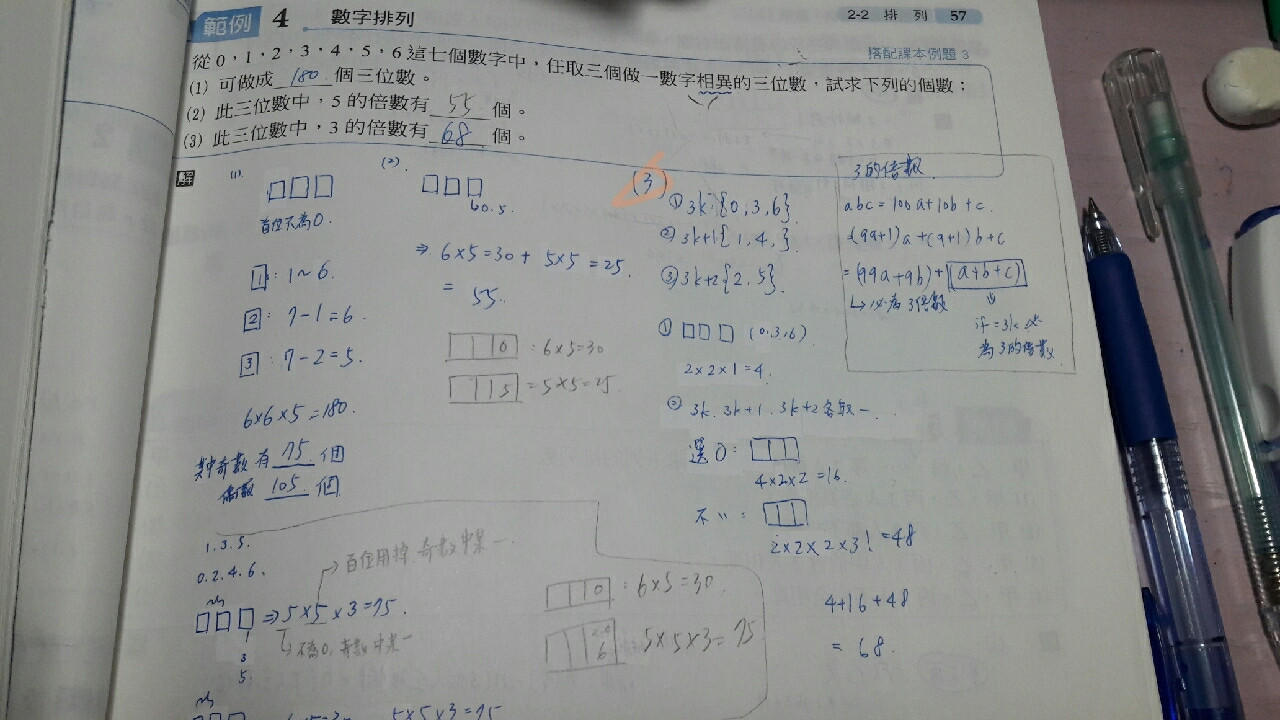 範例 4 數字排列
2-2 排列 57
搭配課本例題 3
從0,1,2,3,4,5,6這七個數字中,任取三個做一數字相異的三位數,試求下列的個數:
(1) 可做成 180 個三位數。
(2) 此三位數中,5 的倍數有 55 個。
(3) 此三位數中,3 的倍數有 68 個。
解
(1)
□□□
首位不為0.
1: 1~6.
2: 7-1=6.
3: 7-2=5.
6×6×5=180.
其中奇數有 75 個
偶數 105 個
(2)
□□□
0.5.
⇒ 6×5=30 + 5×5=25.
= 55.
0 : 6×5=30
5 = 5×5=25
(3)
① 3k {0,3,6}
② 3k+1 {1,4,}
③ 3k+2 {2,5}
① □□□ (0,3,6)
2×2×1=4.
② 3k, 3k+1, 3k+2 各取一.
選0:
4×2×2=16.
不〃:
2×2×2×3!=48
4+16+48
= 68.
3的倍數
abc=100a+10b+c.
(99+1)a+(9+1)b+c
=(99a+9b)+(a+b+c)
↳必為3倍數
許=3k 必
為3的倍數
1.3.5.
0.2.4.6.
百位用掉奇數中某一.
□□□ ⇒ 5×5×3=75.
1
3
5.
↳不為0,奇數中某一
0 : 6×5=30
2,4
6
5×5×3=75
6×5=30
5×5×3=75